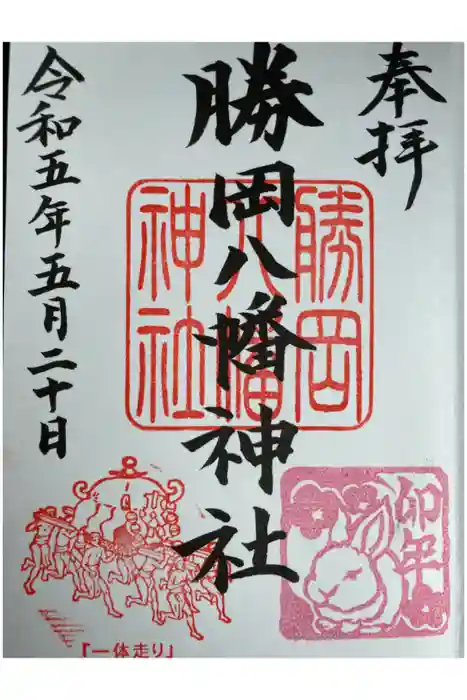 奉拝
勝岡八幡神社
勝岡
八幡
神社
令和五年五月二十日
卯年
『一体走り』